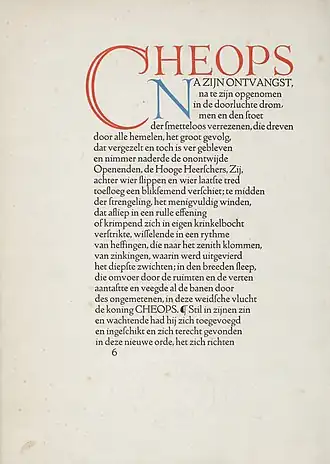 CHEOPS
NA ZIJN ONTVANGST,
na te zijn opgenomen
in de doorluchte drom-
men en den stoet
der smetteloos verrezenen, die dreven
door alle hemelen, het groot gevolg,
dat vergezelt en toch is ver gebleven
en nimmer naderde de onontwijde
Openenden, de Hooge Heerschers, Zij,
achter wier slippen en wier laatste tred
toesloeg een bliksemend verschiet; te midden
der strengeling, het menigvuldig winden,
dat afliep in een rulle effening
of krimpend zich in eigen krinkelbocht
verstrikte, wisselende in een rythme
van heffingen, die naar het zenith klommen,
van zinkingen, waarin werd uitgevierd
het diepste zwichten; in den breeden sleep,
die omvoer door de ruimten en de verten
aantastte en veegde al de banen door
des ongemetenen, in deze weidsche vlucht
de koning CHEOPS. ¶ Stil in zijnen zin
en wachtende had hij zich toegevoegd
en ingeschikt en zich terecht gevonden
in deze nieuwe orde, het zich richten
6